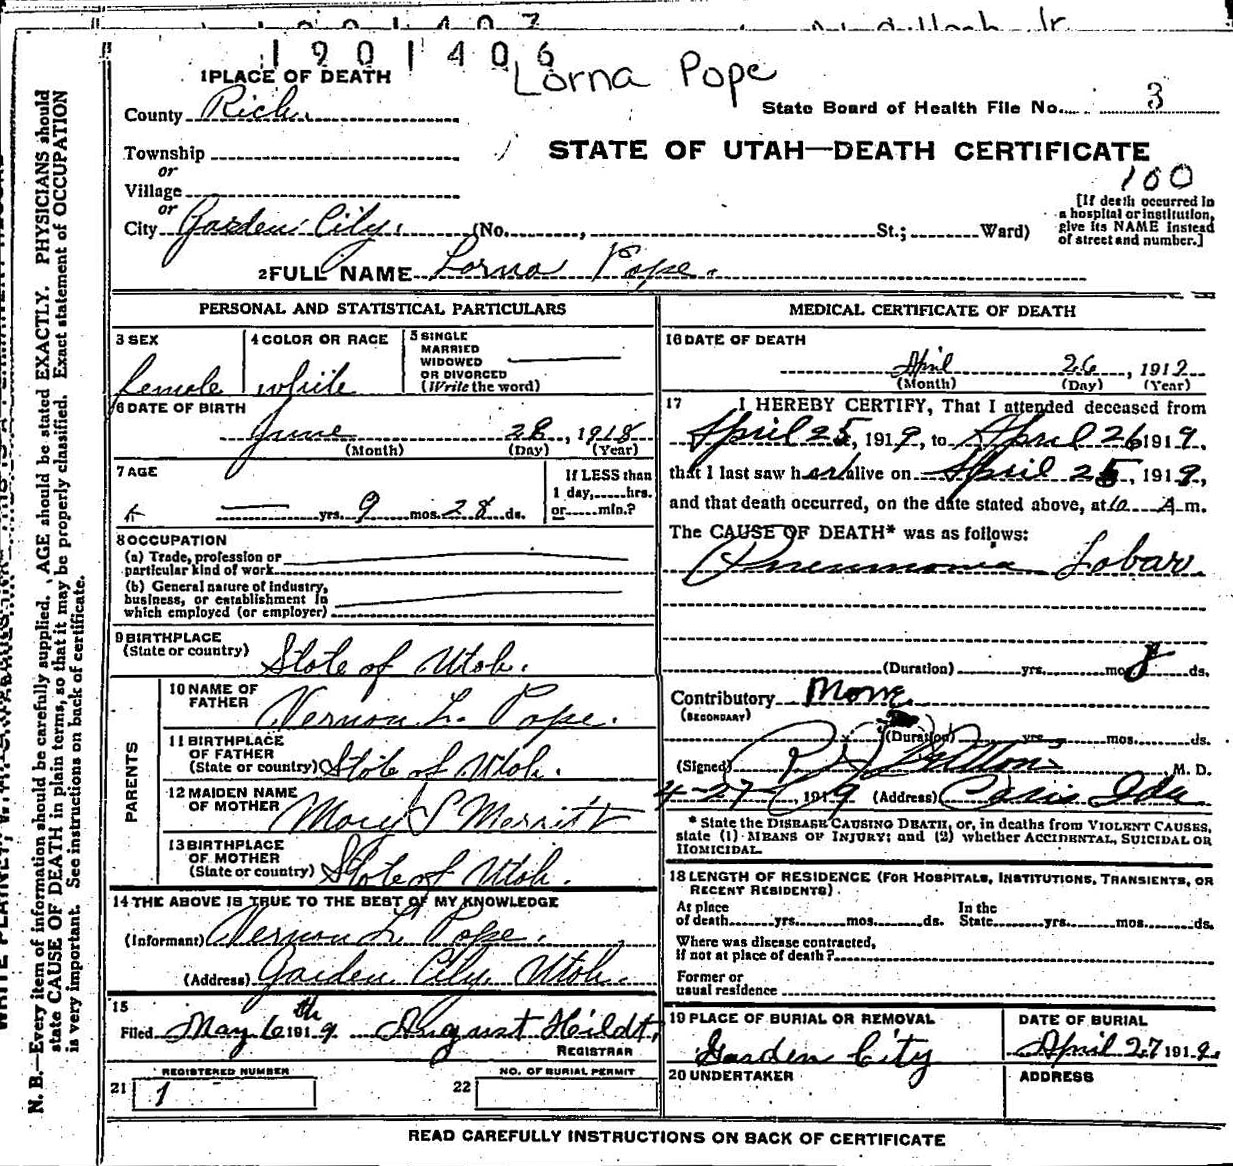 1901406
Lorna Pope
1 PLACE OF DEATH
State Board of Health File No. 3
County Rich.
Township
STATE OF UTAH—DEATH CERTIFICATE
or
Village
100
or
City Garden City. (No. , St.; Ward)
[If death occurred in
a hospital or institution,
give its NAME instead
of street and number.]
2 FULL NAME Lorna Pope.
PERSONAL AND STATISTICAL PARTICULARS
3 SEX
female
4 COLOR OR RACE
white
5 SINGLE
MARRIED
WIDOWED
OR DIVORCED
(Write the word)
6 DATE OF BIRTH
June 28, 1918
(Month) (Day) (Year)
7 AGE
yrs. 9 mos. 28 ds.
If LESS than
1 day, hrs.
or min.?
8 OCCUPATION
(a) Trade, profession or
particular kind of work
(b) General nature of industry,
business, or establishment in
which employed (or employer)
9 BIRTHPLACE
(State or country) State of Utah.
PARENTS
10 NAME OF
FATHER Vernon L. Pope.
11 BIRTHPLACE
OF FATHER
(State or country) State of Utah.
12 MAIDEN NAME
OF MOTHER Mary S Merritt
13 BIRTHPLACE
OF MOTHER
(State or country) State of Utah.
14 THE ABOVE IS TRUE TO THE BEST OF MY KNOWLEDGE
(Informant) Vernon L. Pope.
(Address) Garden City Utah.
15
Filed May 6th 1919. August Hildt,
REGISTRAR
REGISTERED NUMBER
21 1
NO. OF BURIAL PERMIT
22
MEDICAL CERTIFICATE OF DEATH
16 DATE OF DEATH
April 26, 1919
(Month) (Day) (Year)
17 I HEREBY CERTIFY, That I attended deceased from
April 25, 1919, to April 26 1919.
that I last saw her alive on April 25, 1919,
and that death occurred, on the date stated above, at 10 A m.
The CAUSE OF DEATH* was as follows:
Pneumonia Lobar.
(Duration) yrs. mos. 8 ds.
Contributory None
(SECONDARY)
(Duration) yrs. mos. ds.
(Signed) M. D.
4-27-, 1919 (Address) Paris Ida
* State the DISEASE CAUSING DEATH, or, in deaths from VIOLENT CAUSES,
state (1) MEANS OF INJURY; and (2) whether ACCIDENTAL, SUICIDAL OR
HOMICIDAL.
18 LENGTH OF RESIDENCE (FOR HOSPITALS, INSTITUTIONS, TRANSIENTS, OR
RECENT RESIDENTS).
At place
of death yrs. mos. ds.
In the
State yrs. mos. ds.
Where was disease contracted,
if not at place of death?
Former or
usual residence
19 PLACE OF BURIAL OR REMOVAL
Garden City
DATE OF BURIAL
April 27 1919.
20 UNDERTAKER
ADDRESS
READ CAREFULLY INSTRUCTIONS ON BACK OF CERTIFICATE
N. B.—Every item of information should be carefully supplied. AGE should be stated EXACTLY. PHYSICIANS should
state CAUSE OF DEATH in plain terms, so that it may be properly classified. Exact statement of OCCUPATION
is very important. See instructions on back of certificate.